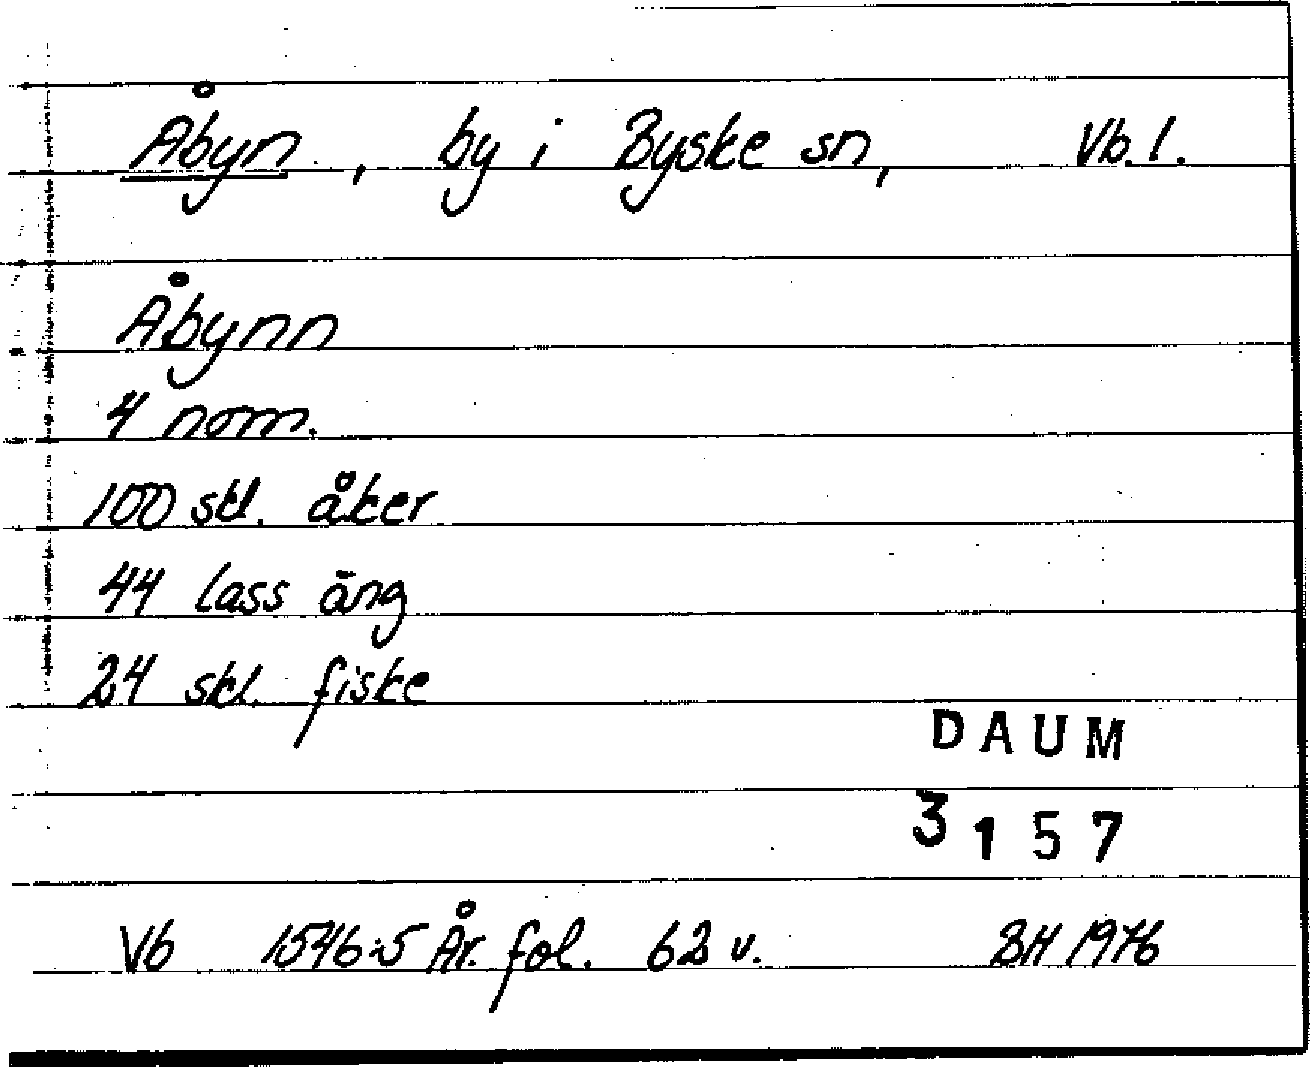 Åbyn, by i Byske sn, Vb. l.
Åbynn
4 nom.
100 skl. åker
44 lass äng
24 skl. fiske
DAUM
3157
Vb 1546:5 År. fol. 62 v. BH 1976